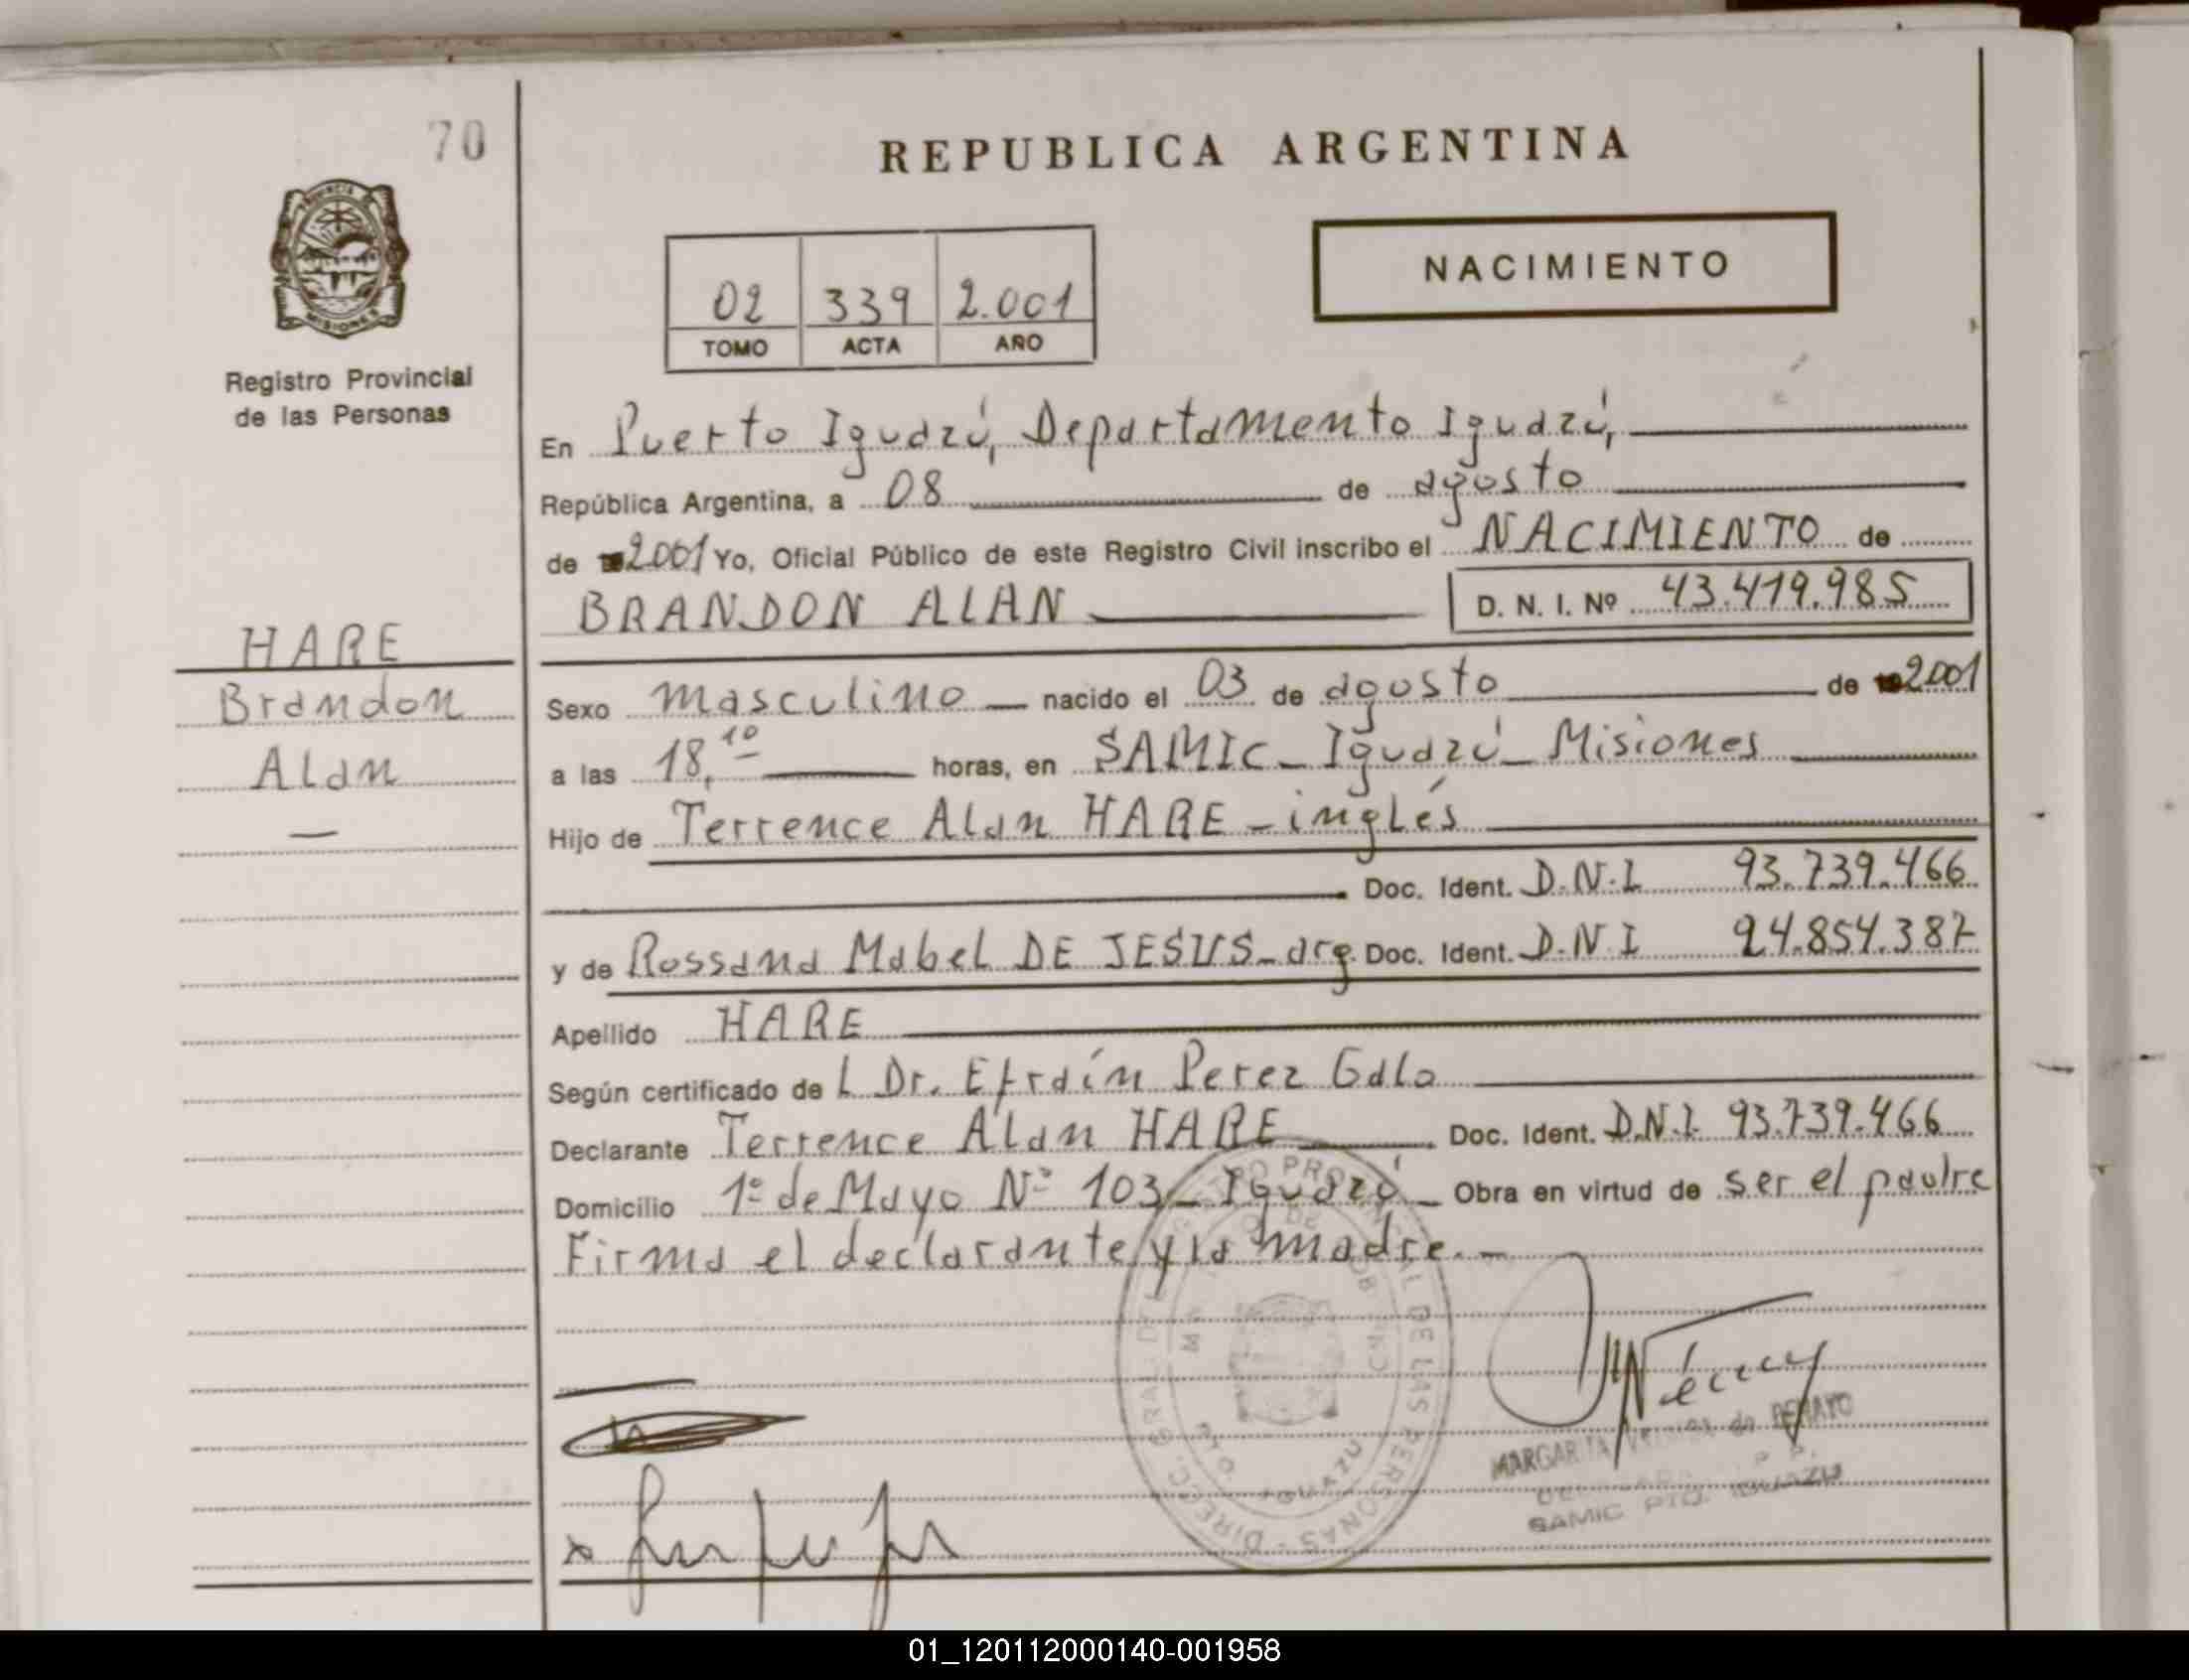 70
REPUBLICA ARGENTINA
PROVINCIA
MISIONES
Registro Provincial
de las Personas
02 339 2.001
TOMO ACTA AÑO
NACIMIENTO
En Puerto Iguazú, Departamento Iguazú,
República Argentina, a 08 de agosto
de 2001 Yo, Oficial Público de este Registro Civil inscribo el NACIMIENTO de
BRANDON ALAN D. N. I. Nº 43.419.985
HARE
Brandon
Alan
Sexo masculino nacido el 03 de agosto de 2001
a las 18,10 horas, en SAMIC - Iguazú - Misiones
Hijo de Terrence Alan HARE - inglés
Doc. Ident. D.N.I 93.739.466
y de Rossana Mabel DE JESUS - arg. Doc. Ident. D.N.I 24.854.387
Apellido HARE
Según certificado del Dr. Efraín Perez Galo
Declarante Terrence Alan HARE Doc. Ident. D.N.I. 93.739.466
Domicilio 1º de Mayo Nº 103 - Iguazú - Obra en virtud de ser el padre
Firma el declarante y la madre. -
DIREC. GRAL. DEL REGISTRO PROVINCIAL DE LAS PERSONAS
PTO. IGUAZU
MARGARITA de
SAMIC PTO. IGUAZU
01_120112000140-001958